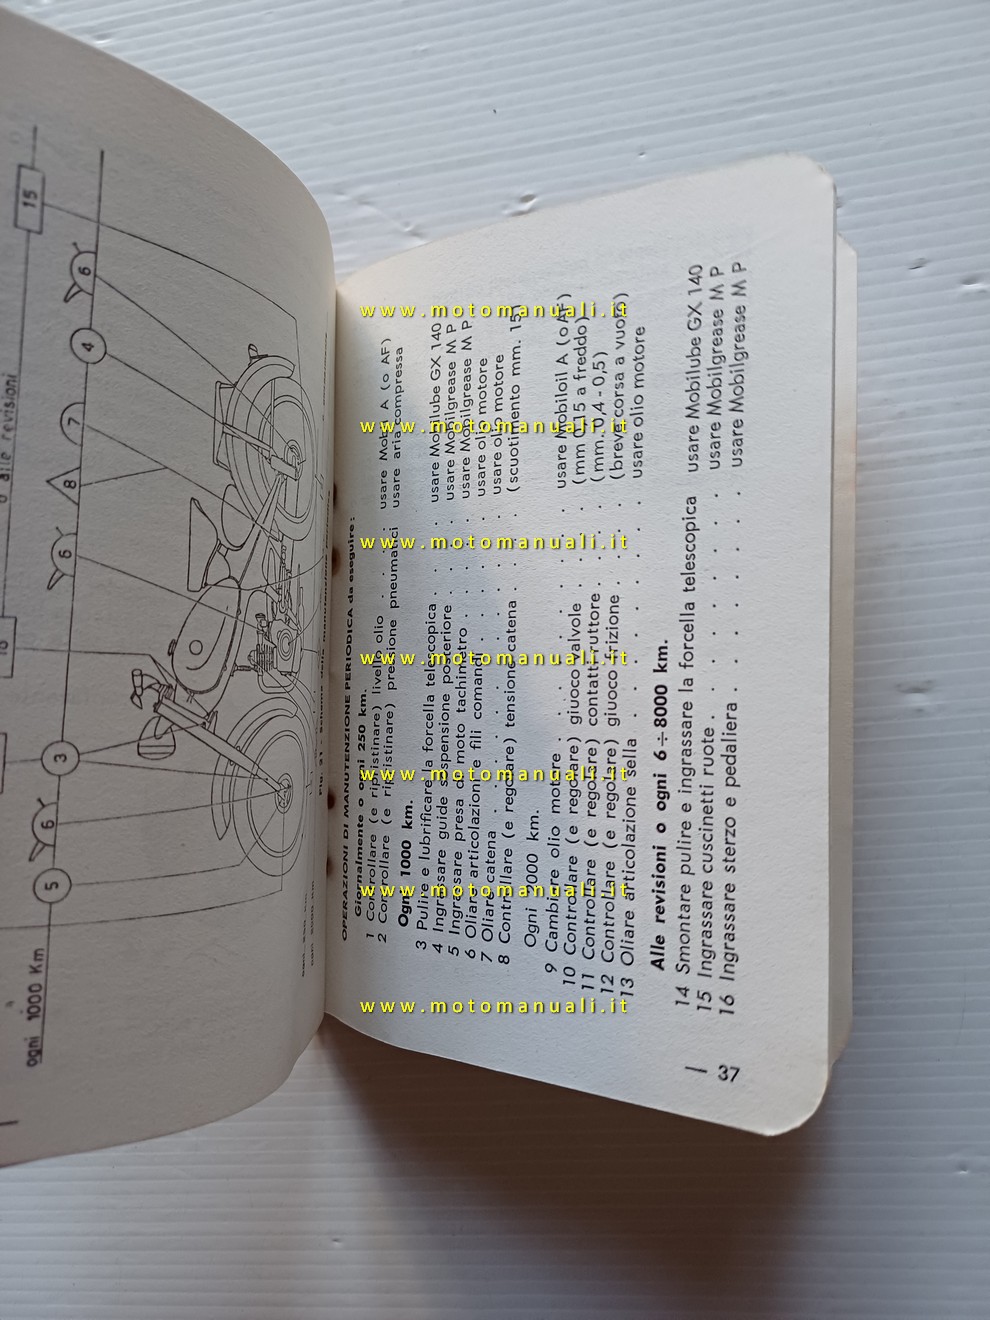 o alle revisioni
15
6
4
7
8
6
3
6
5
ogni 1000 Km
OPERAZIONI DI MANUTENZIONE PERIODICA da eseguire :
Giornalmente o ogni 250 km.
1 Controllare (e ripristinare) livello olio . . . . usare Mob. A (o AF)
2 Controllare (e ripristinare) pressione pneumatici usare aria compressa
Ogni 1000 km.
3 Pulire e lubrificare la forcella telescopica . . . . usare Mobilube GX 140
4 Ingrassare guide sospensione posteriore . . . . usare Mobilgrease M P
5 Ingrassare presa di moto tachimetro . . . . usare Mobilgrease M P
6 Oliare articolazioni e fili comandi . . . . usare olio motore
7 Oliare catena . . . . . . usare olio motore
8 Controllare (e regolare) tensione catena . . . . (scuotimento mm. 15)
Ogni 2000 km.
9 Cambiare olio motore . . . . . usare Mobiloil A (o AF)
10 Controllare (e regolare) giuoco valvole . . (mm 0,15 a freddo)
11 Controllare (e regolare) contatti ruttore . . (mm. 0,4 - 0,5)
12 Controllare (e regolare) giuoco frizione . . (breve corsa a vuoto)
13 Oliare articolazione sella . . . . . usare olio motore
Alle revisioni o ogni 6 ÷ 8000 km.
14 Smontare pulire e ingrassare la forcella telescopica usare Mobilube GX 140
15 Ingrassare cuscinetti ruote . . . . . . usare Mobilgrease M P
16 Ingrassare sterzo e pedaliera . . . . . . usare Mobilgrease M P
37
www.motomanuali.it
www.motomanuali.it
www.motomanuali.it
www.motomanuali.it
www.motomanuali.it
www.motomanuali.it
www.motomanuali.it